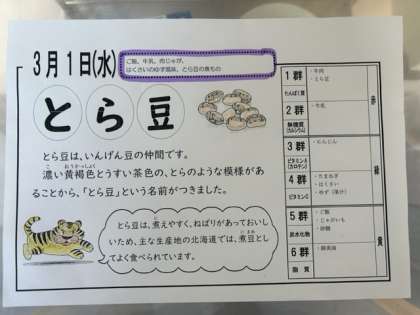 3月1日(水)
ご飯、牛乳、肉じゃが、
はくさいのゆず風味、とら豆の煮もの
とら豆
とら豆は、いんげん豆の仲間です。
こ おうかっしょく
濃い黄褐色とうすい茶色の、とらのような模様があ
ることから、「とら豆」という名前がつきました。
とら豆は、煮えやすく、ねばりがあっておいし
いため、主な生産地の北海道では、煮豆とし
てよく食べられています。
1群
たんぱく質
・牛肉
・とら豆
2群
無機質
(カルシウム)
・牛乳
赤
3群
ビタミンA
(カロテン)
・にんじん
4群
ビタミンC
・たまねぎ
・はくさい
・ゆず(果汁)
緑
5群
炭水化物
・ご飯
・じゃがいも
・砂糖
6群
脂質
黄